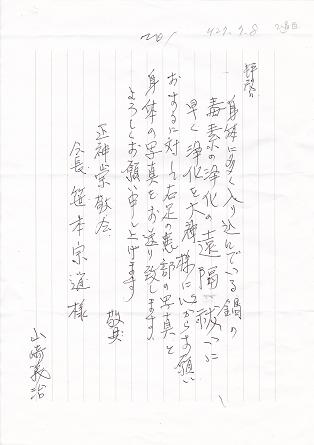 201
H27.9.8
拝啓
身体に多く入り込んでいる鍋の
毒素の浄化の遠隔祓いに
早く浄化を大神様に心からお願い
おするに対し右足の患部の写真と
身体の写真をお送り致します。
よろしくお願い申し上げます
敬具
正神崇敬会
会長 笹本宗道様
山崎義治